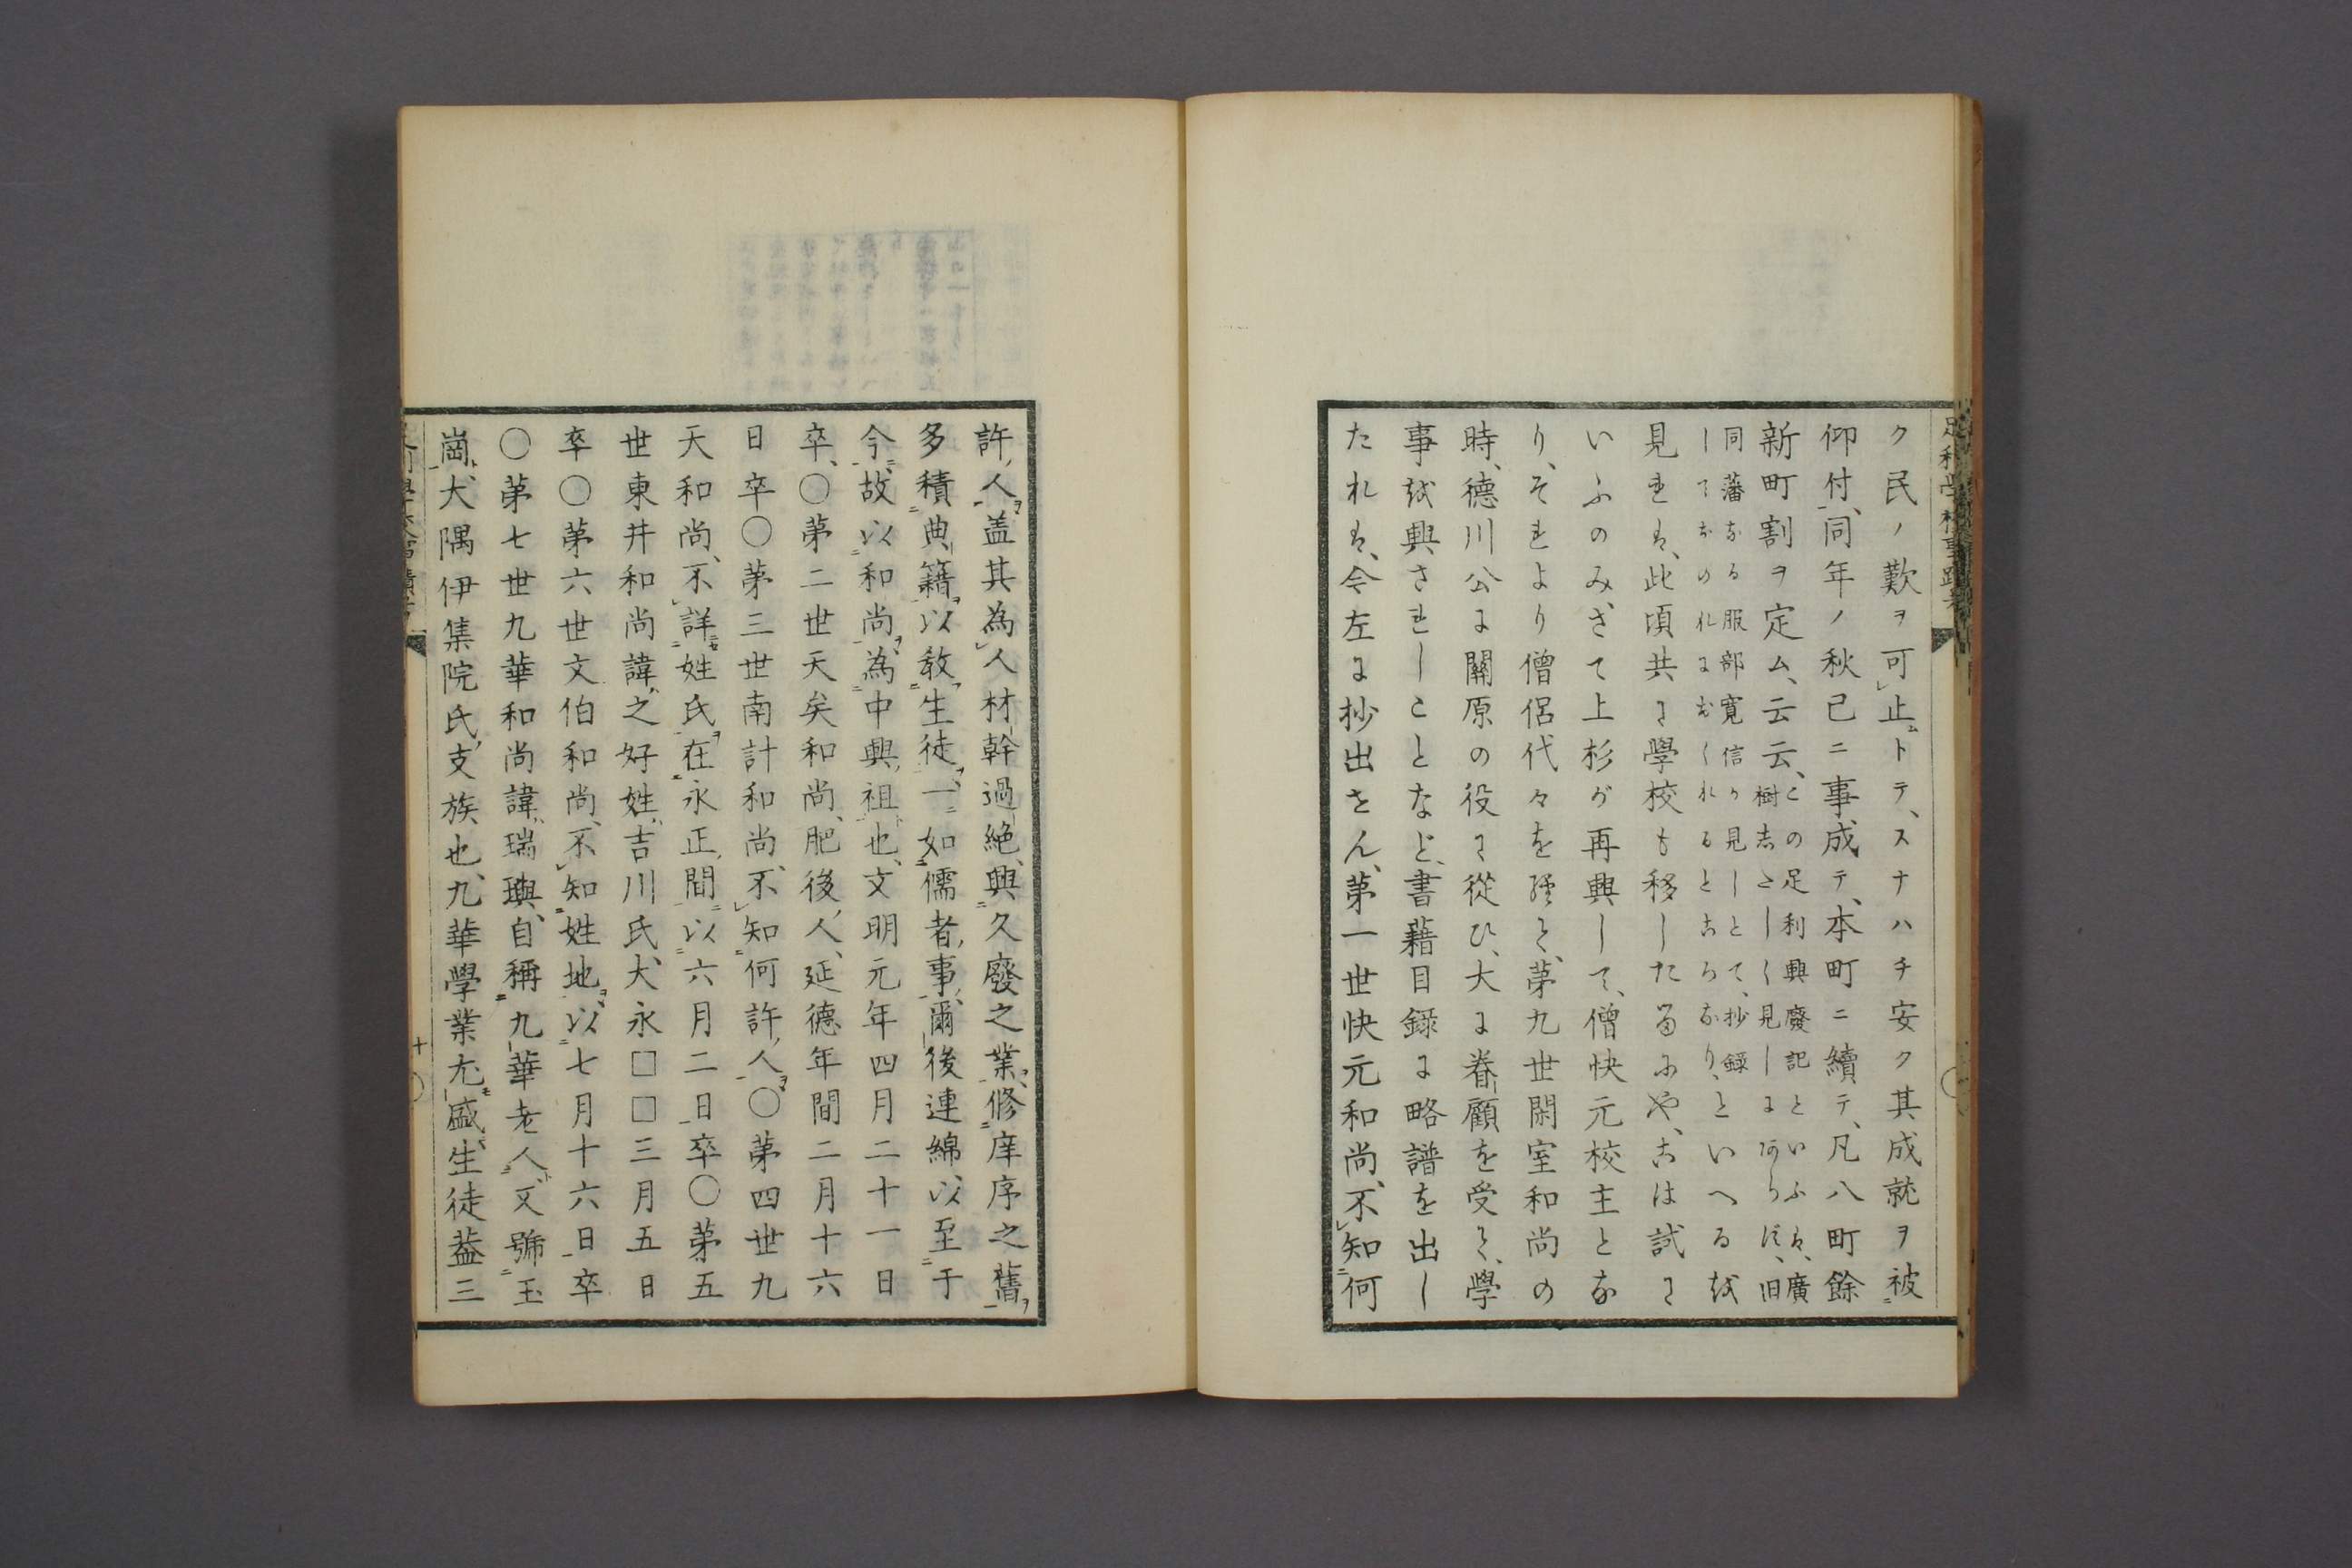 ク民ノ歎ヲ可止トテ、スナハチ安ク其成就ヲ被
仰付、同年ノ秋已ニ事成テ、本町ニ續テ、凡八町餘
新町割ヲ定ム、云云、
この足利興廢記といふは、廣
樹志たしく見しにあらず、旧
同藩なる服部寛信が見しとて、抄録
しておのれにおくれるところなり、
といへるを
見れは、此頃共に學校も移したるにや、こは試に
いふのみ、さて上杉が再興して、僧快元校主とな
り、それより僧侶代々を經て、第九世閑室和尚の
時、德川公に關原の役に從ひ、大に眷顧を受て、學
事を興されしことなど、書藉目録に略譜を出し
たれは、今左に抄出せん、第一世快元和尚、不知何
許人、盖其為人材幹過絶、興久廢之業、修庠序之舊、
多積典籍、以敎生徒、一如儒者事、爾後連綿、以至于
今、故以和尚為中興祖也、文明元年四月二十一日
卒、〇第二世天矣和尚、肥後人、延德年間二月十六
日卒〇第三世南計和尚、不知何許人、〇第四世九
天和尚、不詳姓氏、在永正間、以六月二日卒〇第五
世東井和尚諱之好、姓吉川氏、大永□□三月五日
卒〇第六世文伯和尚、不知姓地、以七月十六日卒
〇第七世九華和尚諱瑞璵、自稱九華老人、又號玉
崗、大隅伊集院氏支族也、九華學業尤盛、生徒葢三